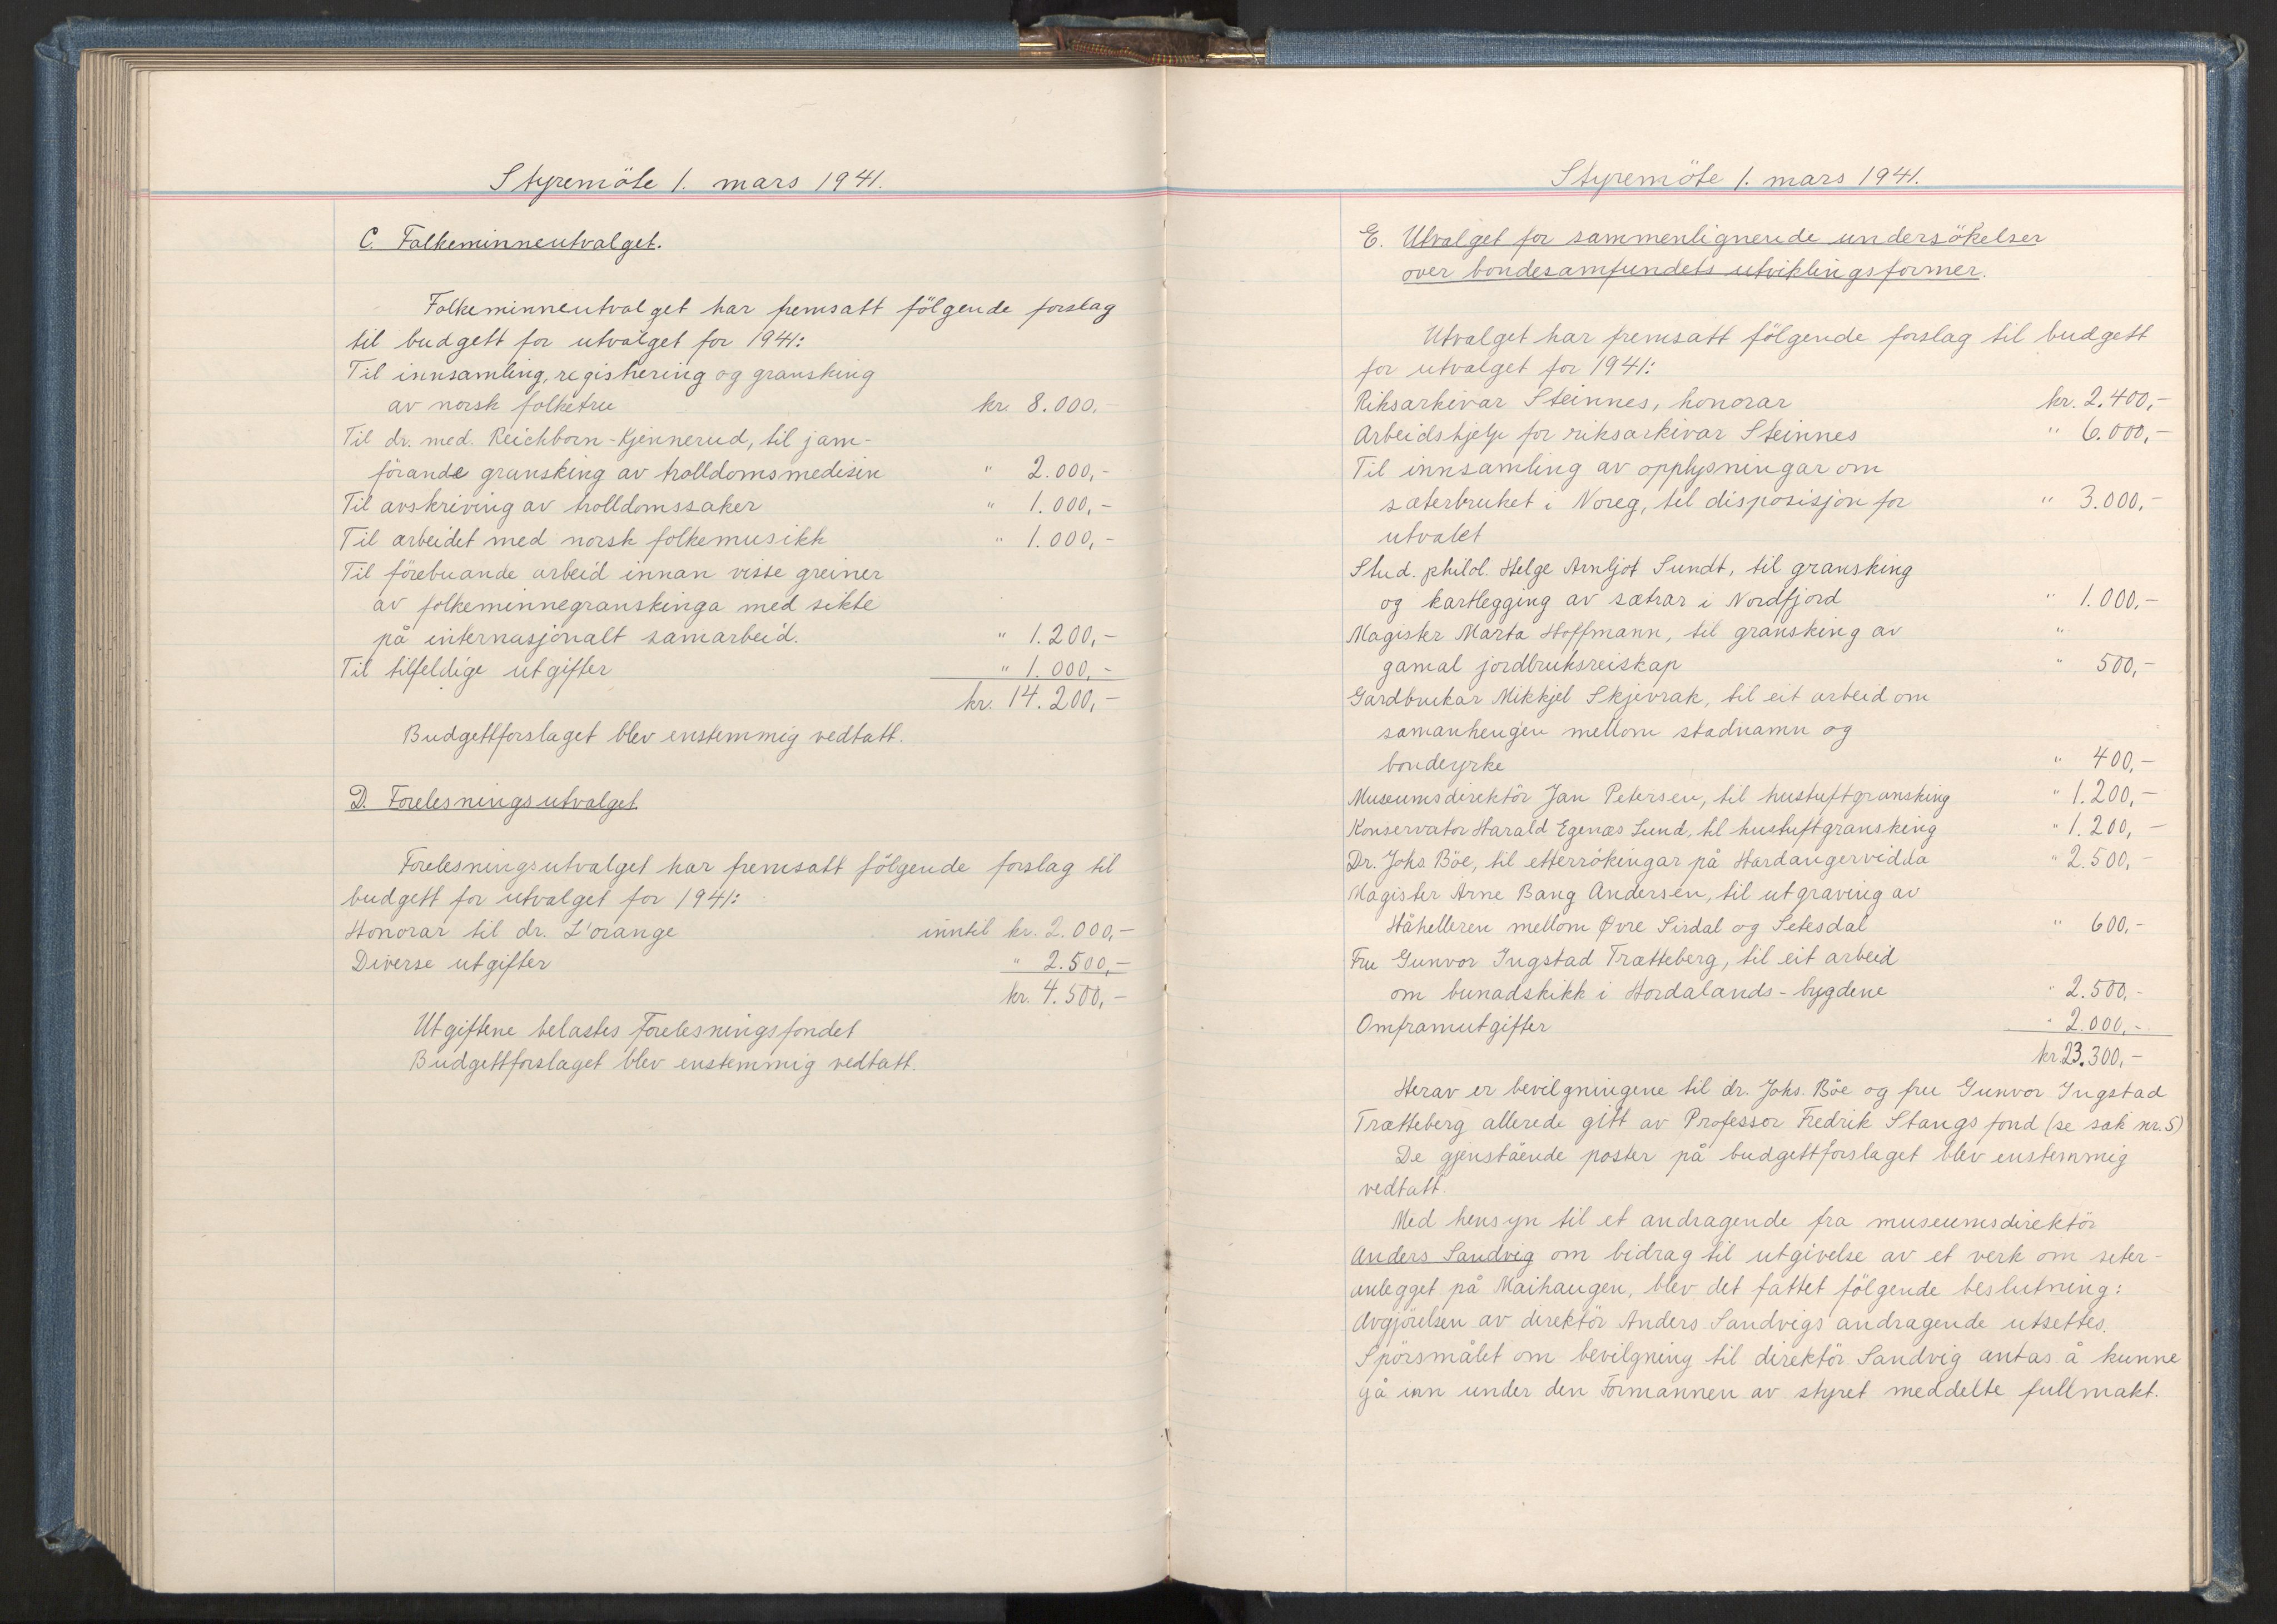 Styremöte 1. mars 1941.
C. Folkeminneutvalget.
Folkeminneutvalget har fremsatt fölgende forslag
til budgett for utvalget for 1941:
Til innsamling, registrering og gransking
av norsk folketru kr. 8.000,-
Til dr. med. Reichborn-Kjennerud, til jam-
förande gransking av trolldomsmedisin " 2.000,-
Til avskriving av trolldomssaker " 1.000,-
Til arbeidet med norsk folkemusikk " 1.000,-
Til förebuande arbeid innan visse greiner
av folkeminnegranskinga med sikte
på internasjonalt samarbeid. " 1.200,-
Til tilfeldige utgifter " 1.000,-
kr. 14.200,-
Budgettforslaget blev enstemmig vedtatt.
D. Forelesningsutvalget.
Forelesningsutvalget har fremsatt fölgende forslag til
budgett for utvalget for 1941:
Honorar til dr. L'orange inntil kr. 2.000,-
Diverse utgifter " 2.500,-
kr. 4.500,-
Utgiftene belastes Forelesningsfondet
Budgettforslaget blev enstemmig vedtatt.
Styremöte 1. mars 1941.
E. Utvalget for sammenlignende undersökelser
over bondesamfundets utviklingsformer.
Utvalget har fremsatt fölgende forslag til budgett
for utvalget for 1941:
Riksarkivar Steinnes, honorar kr. 2.400,-
Arbeidshjelp for riksarkivar Steinnes " 6.000,-
Til innsamling av opplysningar om
sæterbruket i Noreg, til disposisjon for " 3.000,-
utvalet
Stud. philol. Helge Arnljot Sundt, til gransking
og kartlegging av sætrar i Nordfjord " 1.000,-
Magister Marta Hoffmann, til gransking av "
gamal jordbruksreiskap " 500,-
Gardbrukar Mikkjel Skjevrak, til eit arbeid om
samanhengen mellom stadnamn og
bondeyrke " 400,-
Museumsdirektör Jan Petersen, til hustuftgransking " 1.200,-
Konservator Harald Egenæs Lund, til hustuftgransking " 1.200,-
Dr. Johs. Böe, til etterrökingar på Hardangervidda " 2.500,-
Magister Arne Bang Andersen, til utgraving av
Håhelleren mellom Øvre Sirdal og Setesdal " 600,-
Fru Gunvor Ingstad Trætteberg, til eit arbeid
om bunadskikk i Hordalands-bygdene " 2.500,-
Omframutgifter " 2.000,-
kr 23.300,-
Herav er bevilgningene til dr. Johs. Böe og fru Gunvor Ingstad
Trætteberg allerede gitt av Professor Fredrik Stangs fond (se sak nr. 5)
De gjenstående poster på budgettforslaget blev enstemmig
vedtatt.
Med hensyn til et andragende fra museumsdirektör
Anders Sandvig om bidrag til utgivelse av et verk om seter-
anlegget på Maihaugen, blev det fattet fölgende beslutning:
Avgjörelsen av direktör Anders Sandvigs andragende utsettes.
Spörsmålet om bevilgning til direktör Sandvig antas å kunne
gå inn under den Formannen av styret meddelte fullmakt.